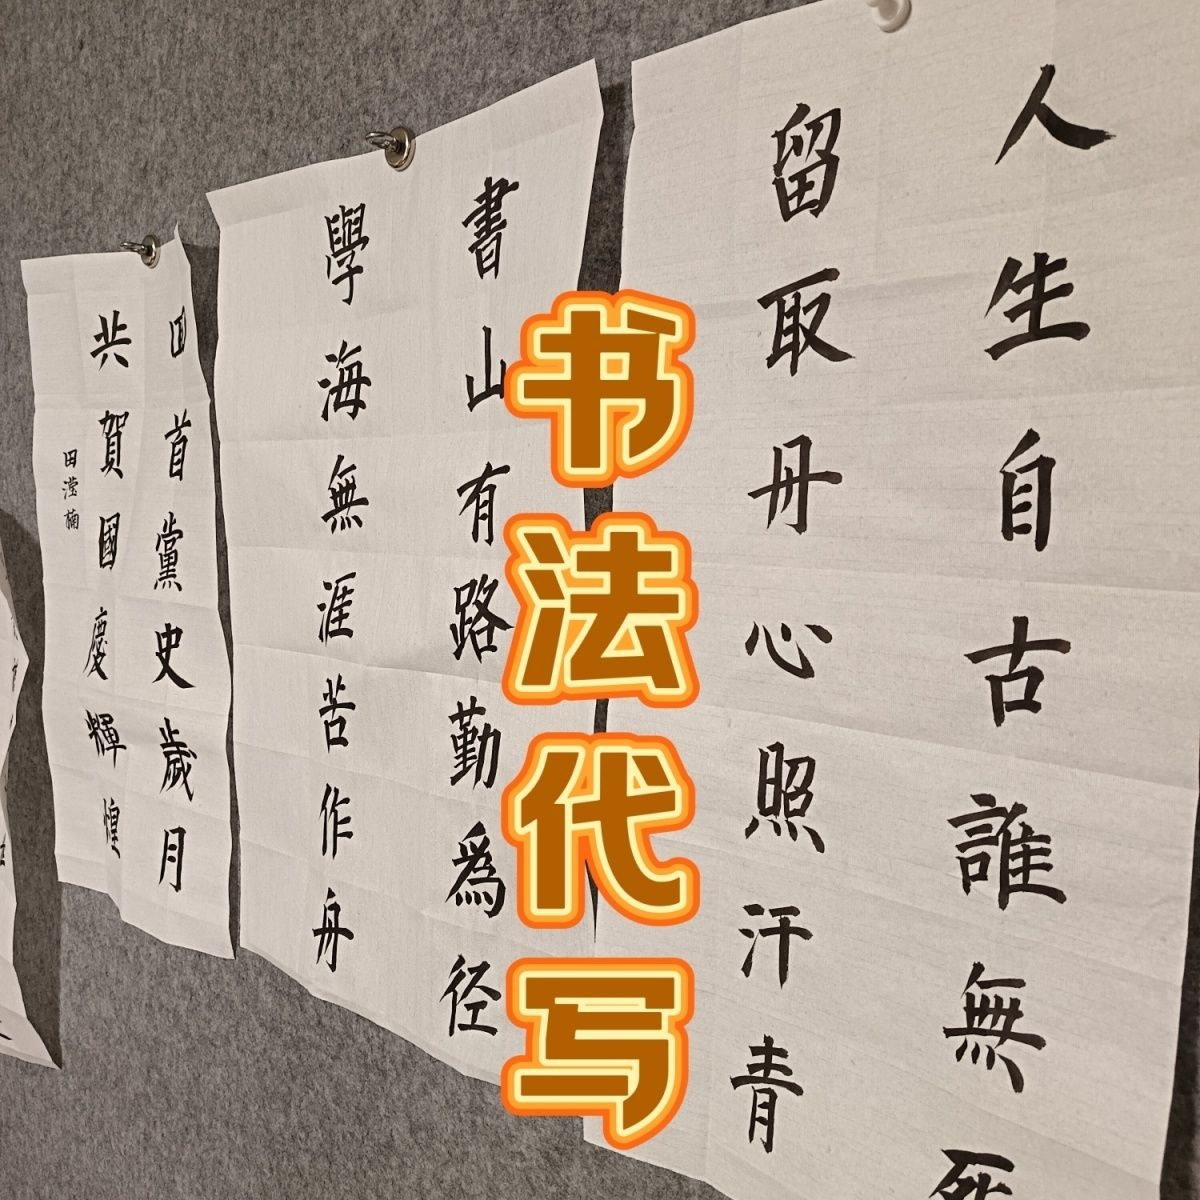 人生自古誰無死
留取丹心照汗青
書山有路勤為径
學海無涯苦作舟
回首黨史歲月
共賀國慶輝煌
田滢楠
书法代写